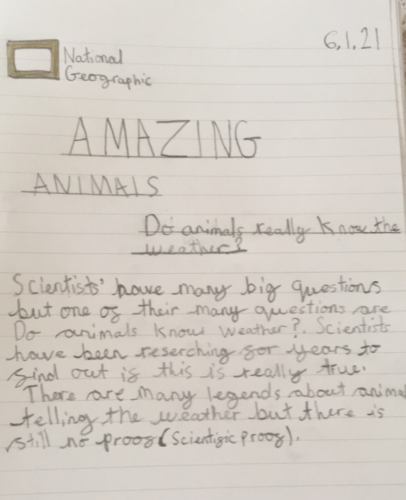 6.1.21
National
Geographic
AMAZING
ANIMALS
Do animals really know the
weather?
Scientists' have many big questions
but one of their many questions are
Do animals know weather?. Scientists
have been reserching for years to
find out if this is really true.
There are many legends about animal
telling the weather but there is
still no proof (Scientific proof).